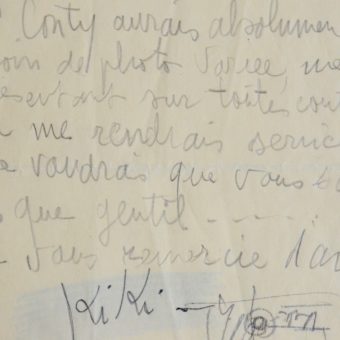 Conty aurais absolumen
de photo variée, me
sur toutes cou
me rendrais servic
voudrais que vous
que gentil - - - -
vous remercie d'av
Kiki